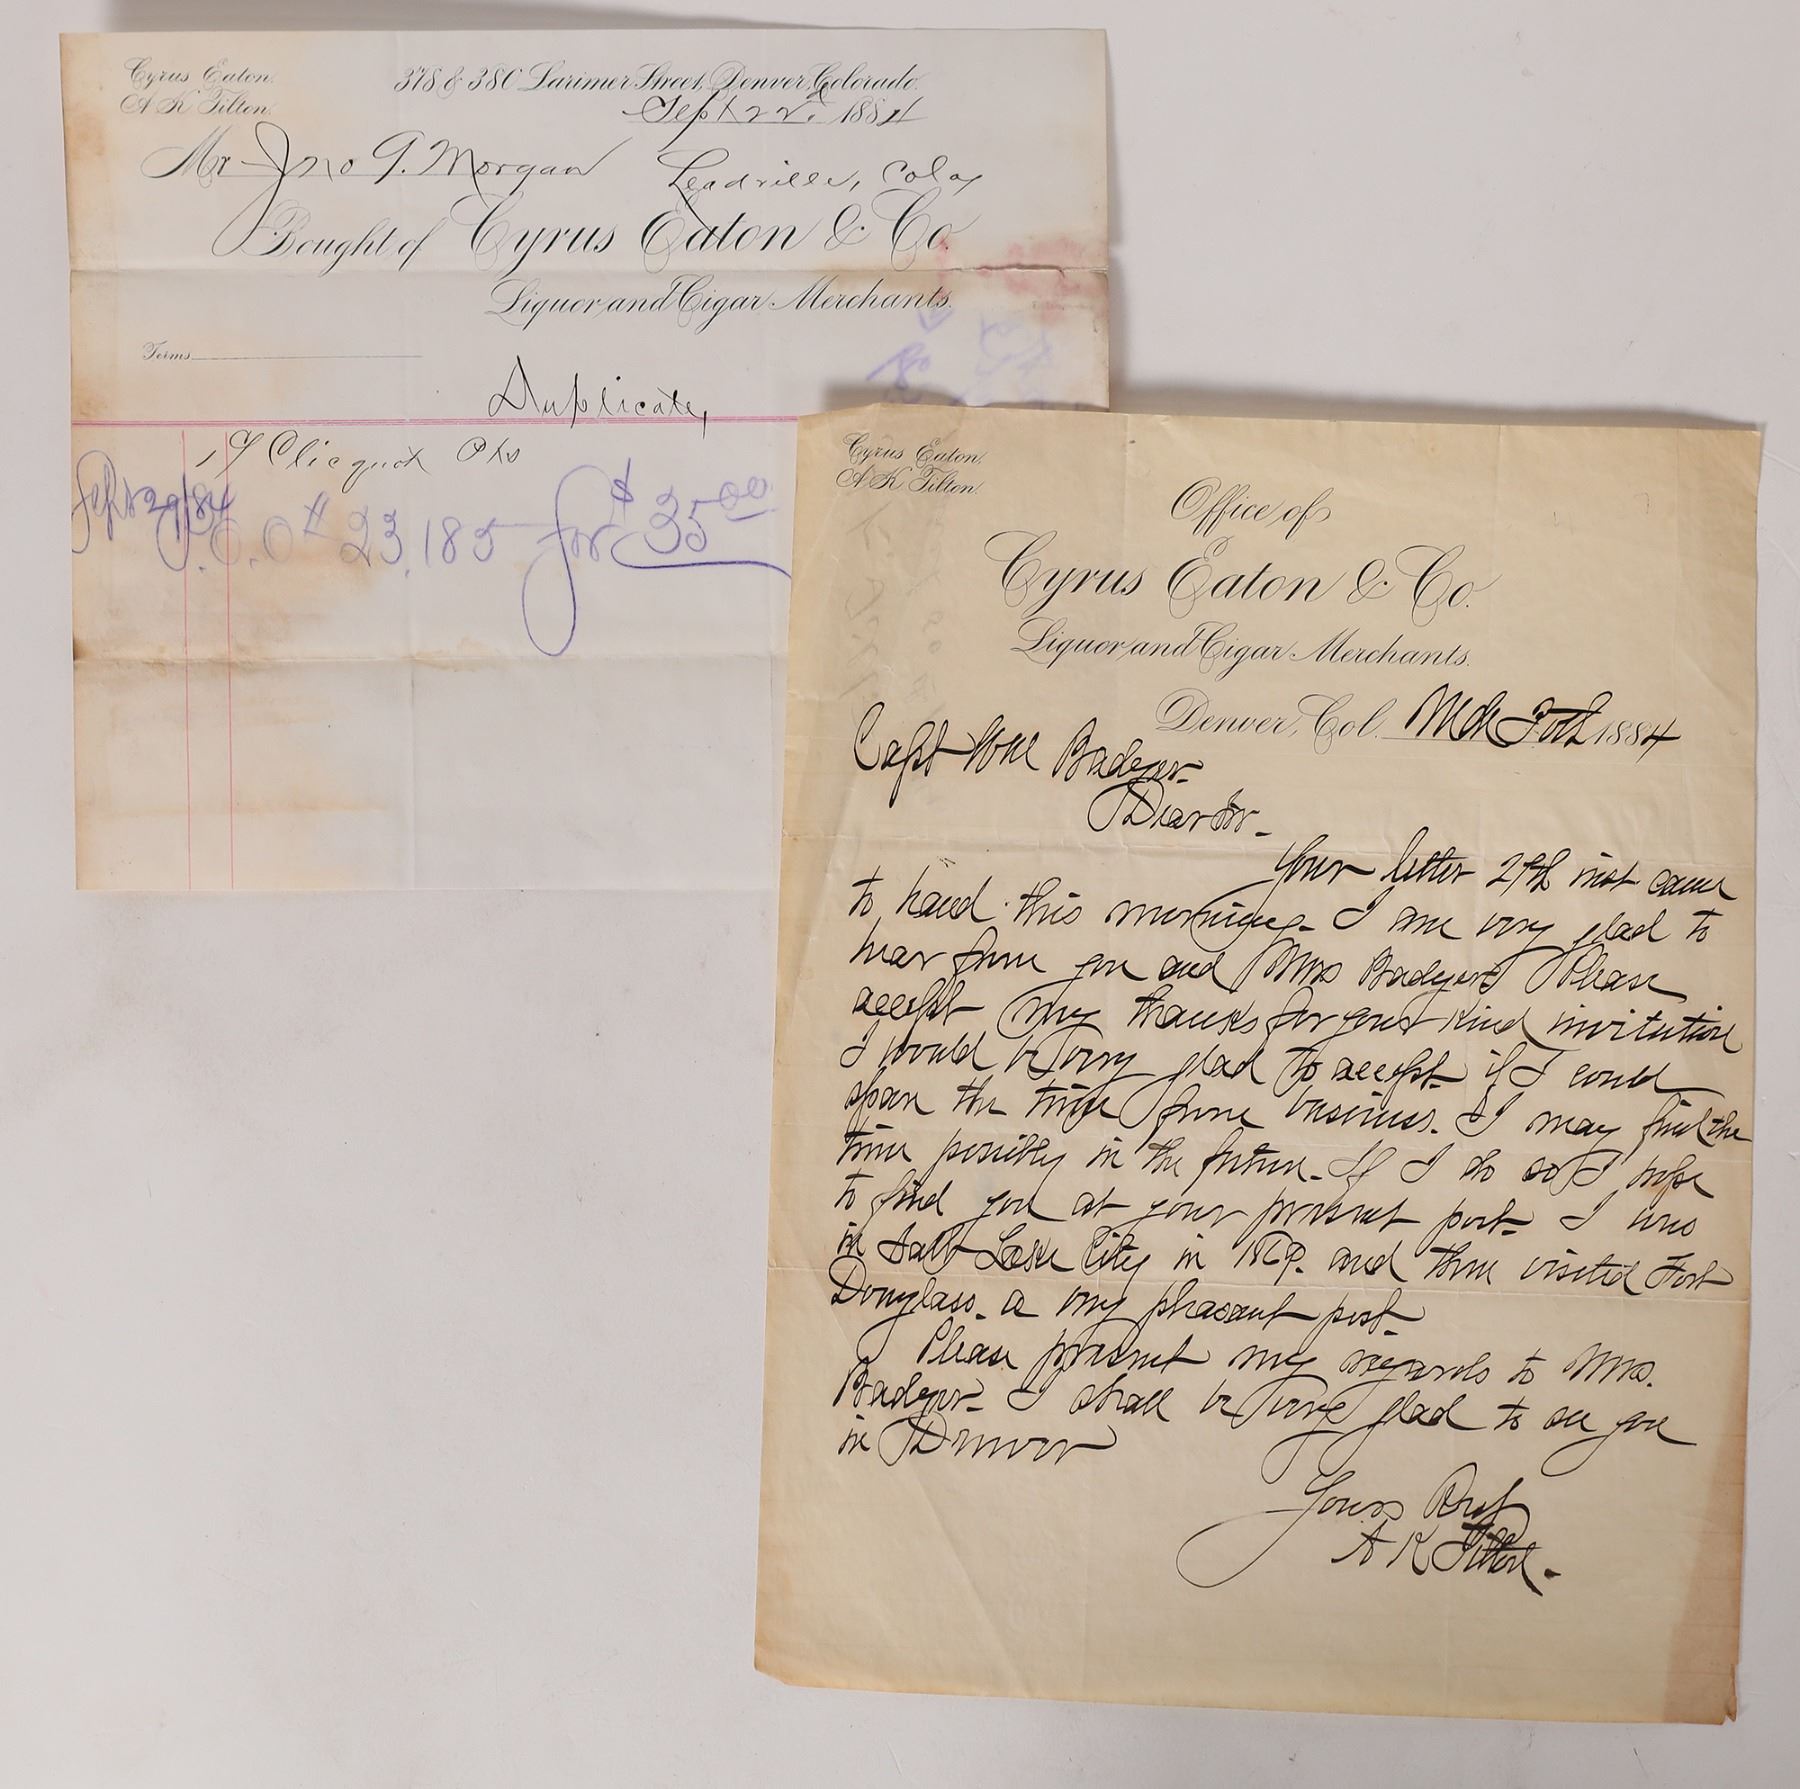 Cyrus Eaton.
A K Tilton.
378 & 380 Larimer Street, Denver, Colorado.
Sept 22d 1884
Mr Jno G. Morgan Leadville, Colo
Bought of Cyrus Eaton & Co.
Liquor and Cigar Merchants.
Terms
Duplicate,
Clicquot Pts
Sept 29/84
P.O.O # 23,185 for $35.00
Cyrus Eaton.
A K Tilton.
Office of
Cyrus Eaton & Co.
Liquor and Cigar Merchants.
Denver, Col. Mch 30th 1884
Capt Wm Badger
Dear Sir.
Your letter 27th inst came
to hand this morning. I am very glad to
hear from you and Mrs Badger. Please
accept my thanks for your kind invitation
I would be very glad to accept if I could
spare the time from business. I may find the
time possibly in the future. If I do so I hope
to find you at your present post. I was
in Salt Lake City in and then visited Fort
Douglass. a very pleasant post.
Please present my regards to Mrs.
Badger. I shall be very glad to see you
in Denver
Yours Resp
A K Tilton.